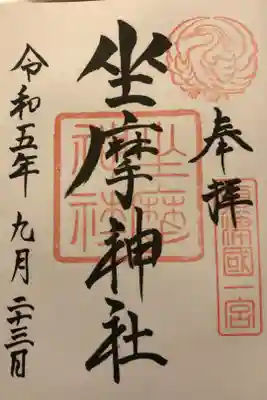 奉拝
摂津國一宮
坐摩神社
坐摩神社
令和五年九月二十三日